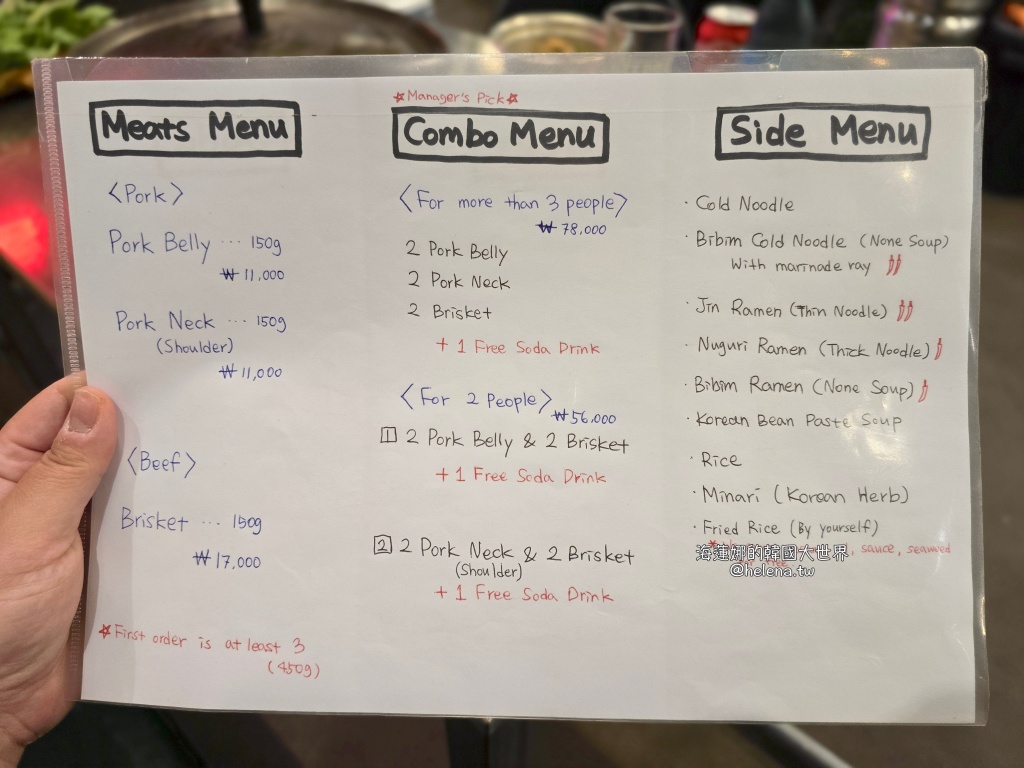 Meats Menu
<Pork>
Pork Belly ... 150g
₩11,000
Pork Neck ... 150g
(Shoulder)
₩11,000
<Beef>
Brisket ... 150g
₩17,000
*First order is at least 3
(450g)
*Manager's Pick*
Combo Menu
<For more than 3 people>
₩78,000
2 Pork Belly
2 Pork Neck
2 Brisket
+ 1 Free Soda Drink
<For 2 People>
₩56,000
1 2 Pork Belly & 2 Brisket
+ 1 Free Soda Drink
2 2 Pork Neck & 2 Brisket
(Shoulder)
+ 1 Free Soda Drink
Side Menu
· Cold Noodle
· Bibim Cold Noodle (None Soup)
With marinade ray
· Jin Ramen (Thin Noodle)
· Nuguri Ramen (Thick Noodle)
· Bibim Ramen (None Soup)
· Korean Bean Paste Soup
· Rice
· Minari (Korean Herb)
· Fried Rice (By yourself)
, sauce, seaweed
海蓮娜的韓國大世界
@helena.tw